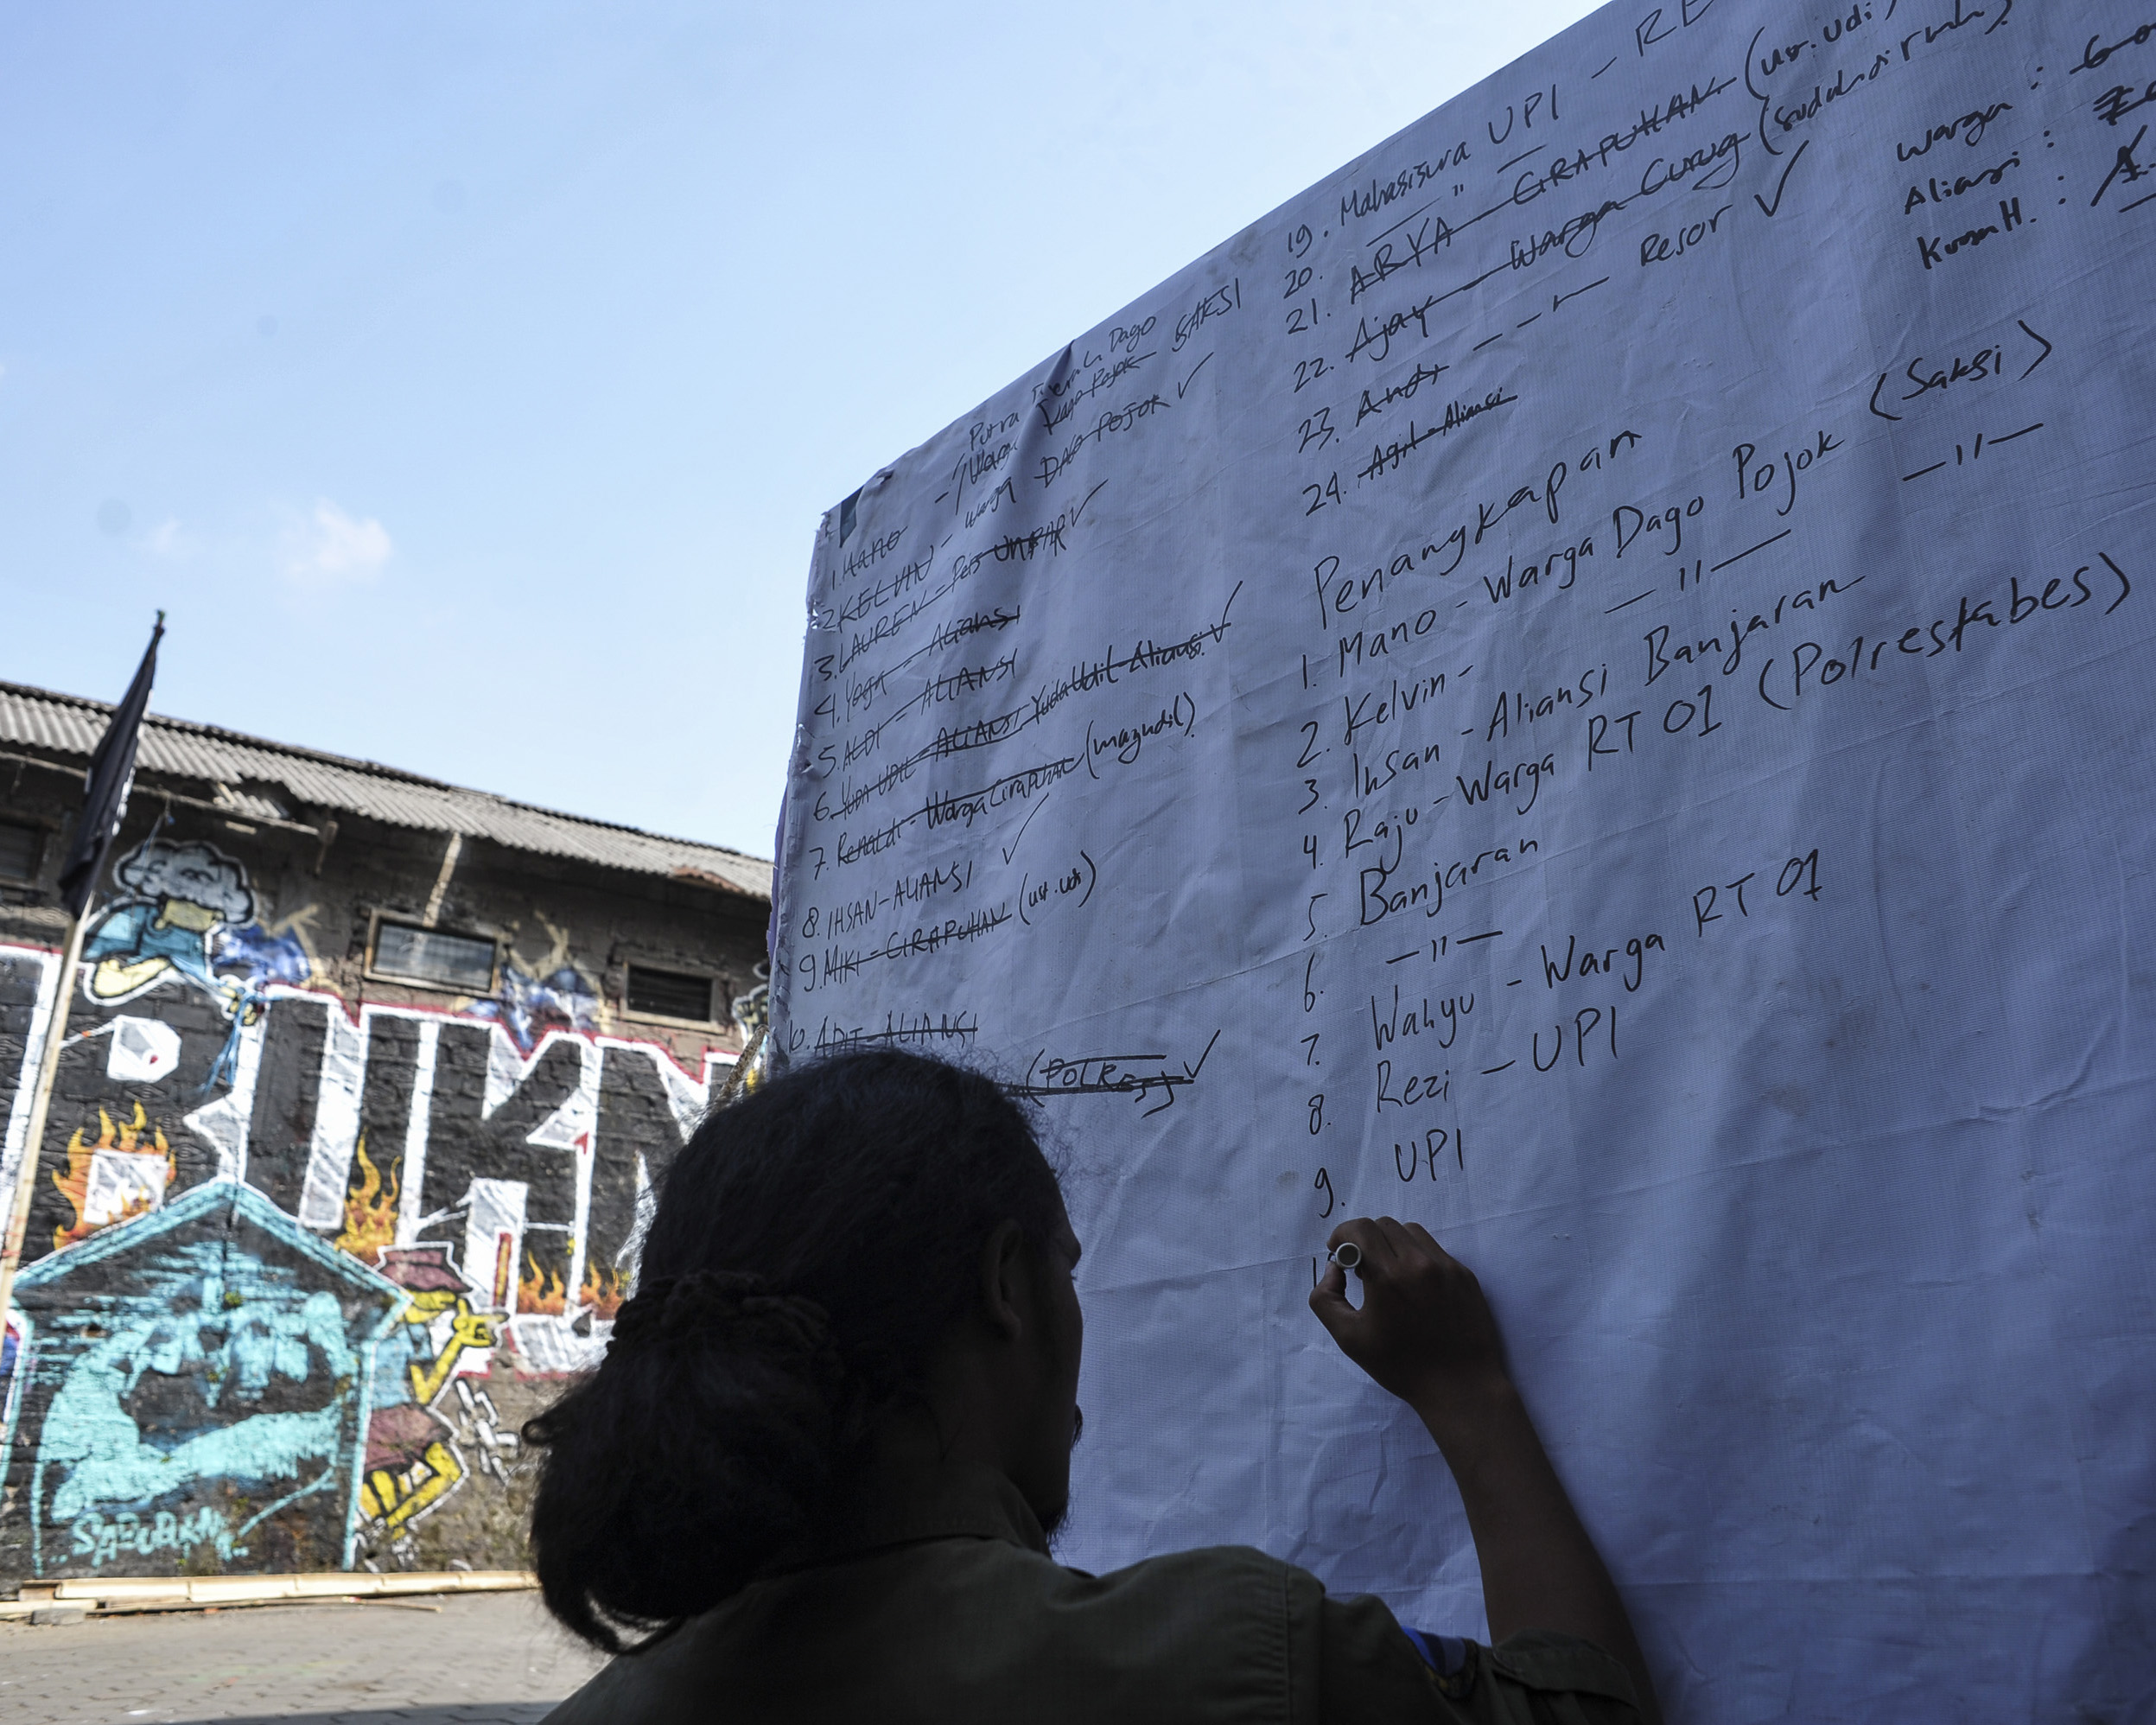 Putra
Dago
Warga Dago Pojok SAKSI
1. MANO -
Warga DAGO POJOK ✓
2. KELVIN -
3. LAUREN - Pers UNPAR ✓
4. Yoga - ALiansi
5. ALDI - ALIANSI
6. YUDA UDIL - ALIANSI Yuda Udil - Aliansi ✓
7. Renaldi - Warga Cirapuhan (mazudil)
8. IHSAN - ALIANSI ✓
9. MIKI - CIRAPUHAN (ust. udi)
10. ADIT - ALIANSI
✓
19. Mahasiswa UPI - RE
20. — " —
21. ARYA - CIRAPUHAN (ust. Udi)
22. Ajay - Warga Curug (sudah dirmh)
23. Andi - - - Resor ✓
24. Agil - Aliansi
Warga :
Aliansi :
Penangkapan
1. Mano - Warga Dago Pojok (Saksi)
2. Kelvin - — " — — " —
3. Ihsan - Aliansi Banjaran
4. Raju - Warga RT 01 (Polrestabes)
5. Banjaran
6. — " —
7. Wahyu - Warga RT 01
8. Rezi - UPI
9. UPI
1